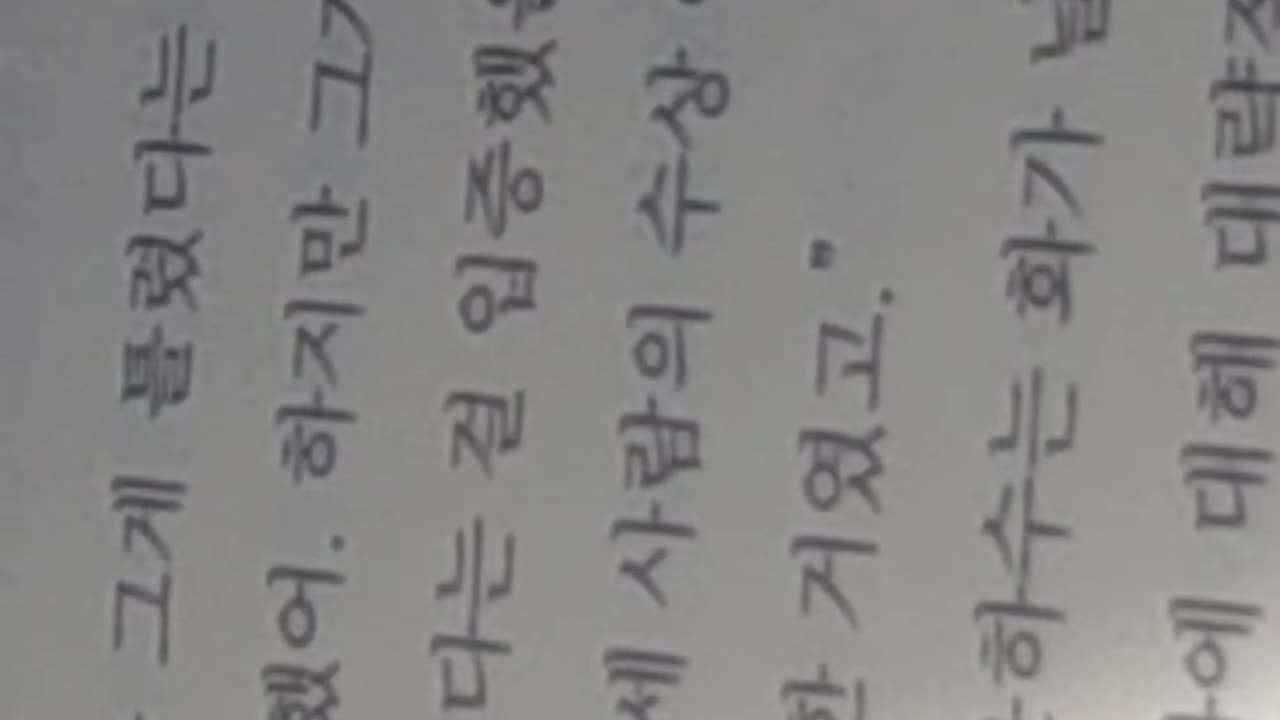 그게 틀렸다는
했어. 하지만
다는 걸 입증했
세 사람의 수상
한 거였고."
하수는 화가
에 대해 대략